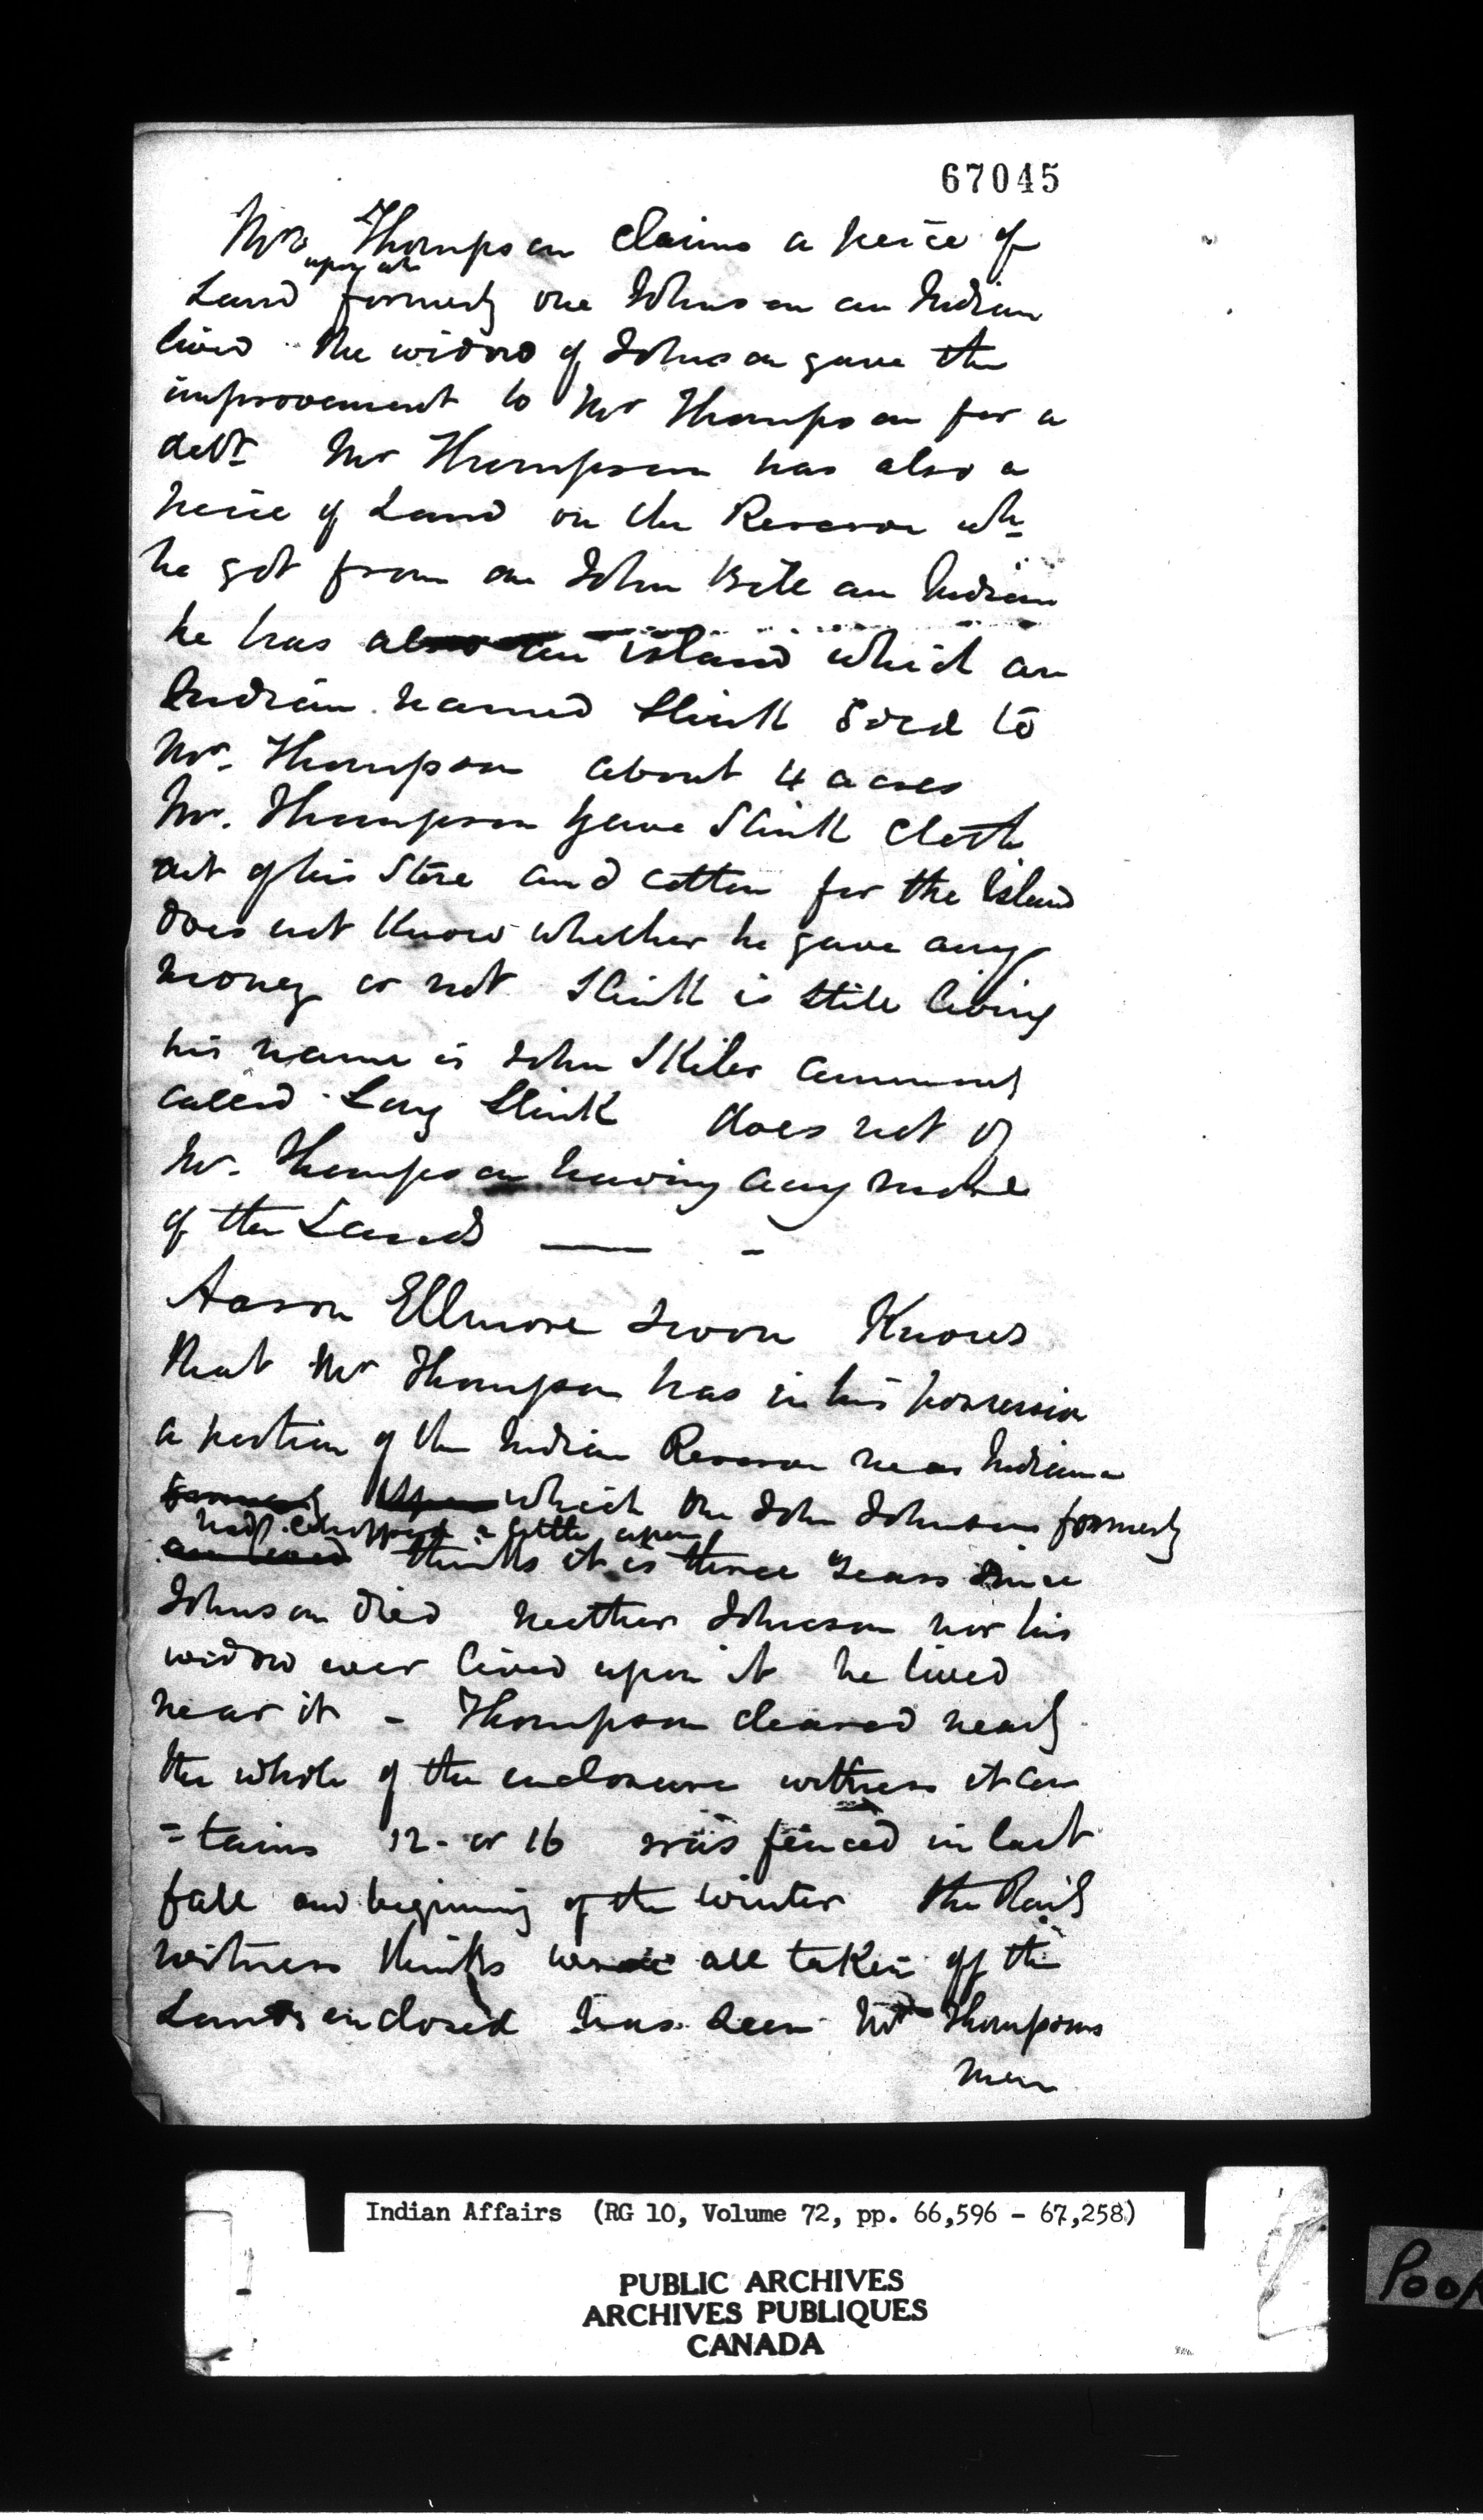 67045
Mr Thompson claims a peice of
upon wh
Land formerly one Johnson an Indian
lived the widow of Johnson gave the
improvement to Mr Thompson for a
debt. Mr Thompson has also a
peice of Land on the Reserve wh
he got from one John Bill an Indian
he has also an island which an
Indian named Slink Sold to
Mr. Thompson about 4 acres
Mr. Thompson gave Slink cloth
out of his Store and cotton for the Island
does not Know whether he gave any
money or not Slink is still living
his name is John Skiler commonly
called Long Slink does not of
Mr. Thompson having any more
of the Lands —— -
Aaron Ellmore Sworn Knows
that Mr Thompson has in his possession
a portion of the Indian Reserve near Indiana
formerly upon which one John Johnson formerly
had chopped a little upon
thinks it is three years since
Johnson died neither Johnson nor his
widow ever lived upon it he lived
near it - Thompson cleared nearly
the whole of the enclosure witness it con
=tains 12 - or 16 was fenced in last
fall and beginning of the winter the Rails
witness thinks were all taken off the
Lands enclosed has seen Mr Thompsons
men
Indian Affairs (RG 10, Volume 72, pp. 66,596 - 67,258)
PUBLIC ARCHIVES
ARCHIVES PUBLIQUES
CANADA